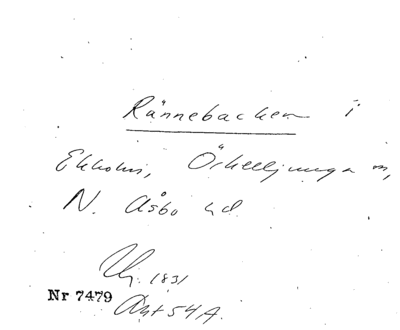 Rännebacken i
Ekholm, Örkelljunga sn,
N. Åsbo hd
1831
Nr 7479
Akt 54A.